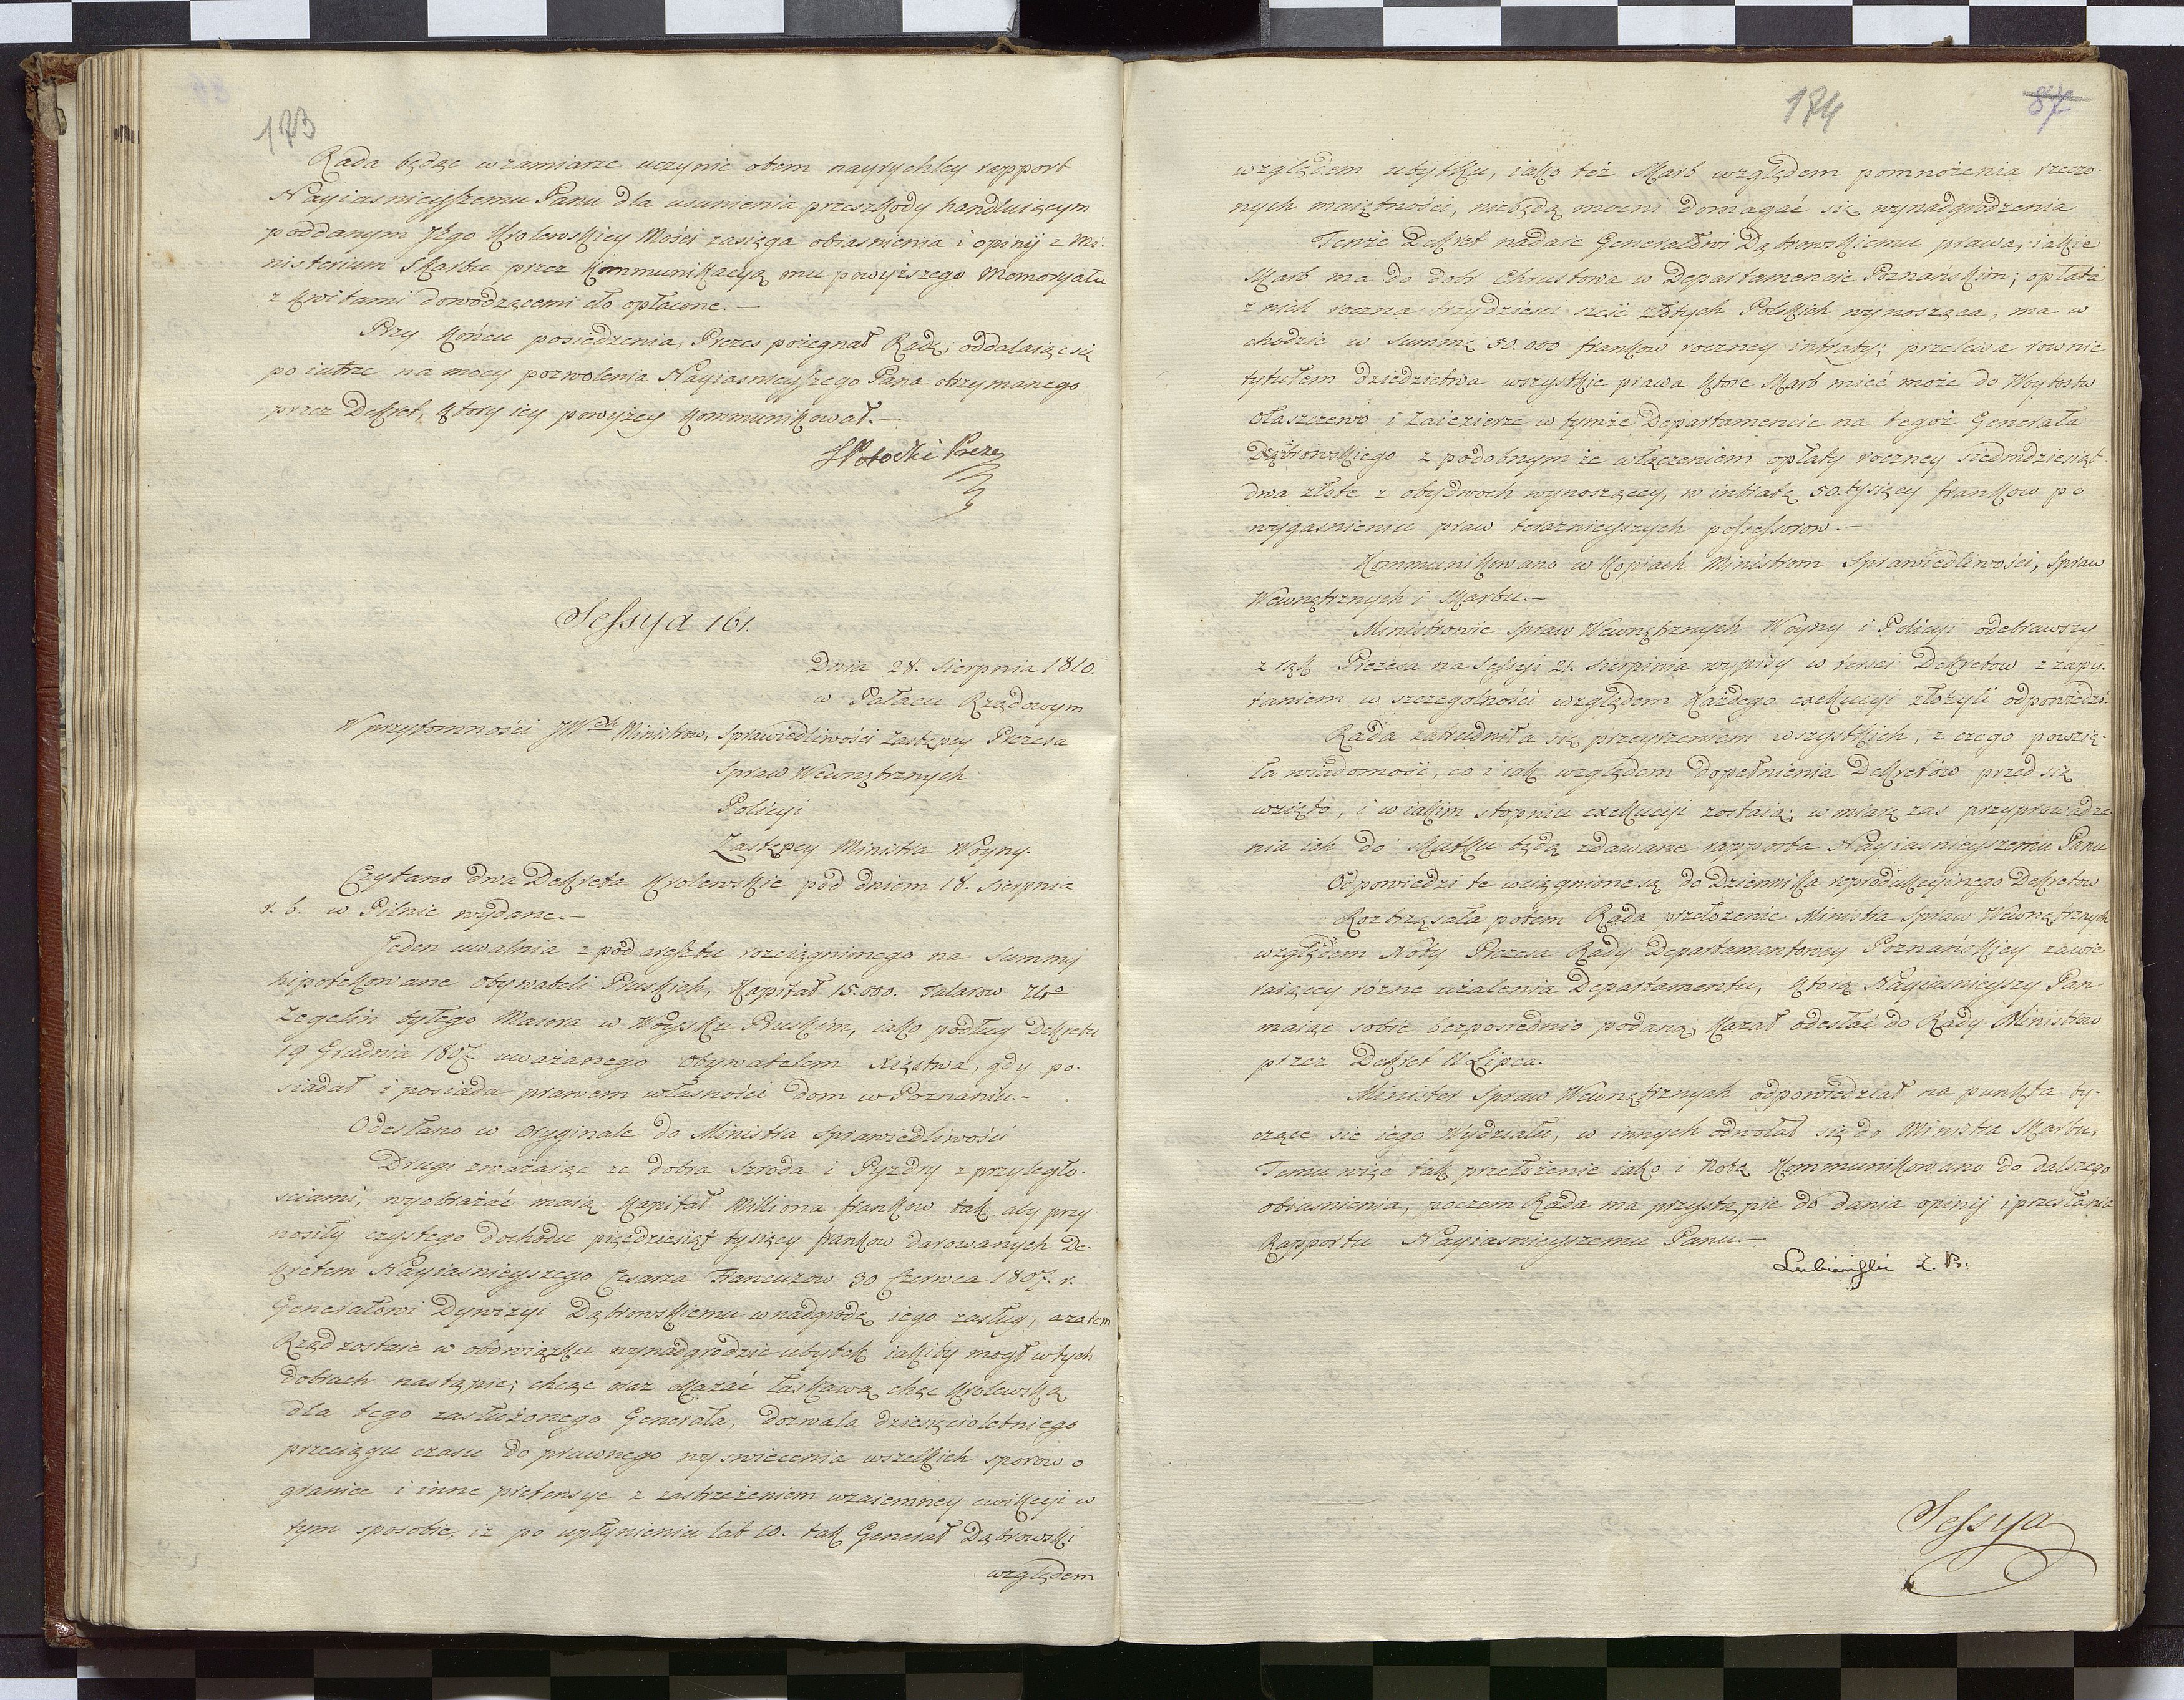 173
Rada będąc w zamiarze uczynić o tem nayrychley rapport
Nayiasnieyszemu Panu dla usunienia przeszkody handluiącym
poddanym JKgo Krolewskiey Mości zasięga obiasnienia i opinij z Mi-
nisterium Skarbu przez kommunikacyą mu powyższego Memoryału
z kwitami dowodzącemi cło opłacone.—
Przy końcu posiedzenia, Prezes pożegnał Radę, oddalaiąc się
po iutrze na mocy pozwolenia Nayiasnieyszego Pana otrzymanego
przez Dekret, ktory iey powyżey kommunikował.—
SPotocki Preze
Sessya 161.
Dnia 28. Sierpnia 1810.
w Pałacu Rządowym
W przytomności JWch Ministrow, Sprawiedliwości Zastępcy Prezesa
Spraw Wewnętrznych
Policyi
Zastępcy Ministra Woyny.
Czytano dwa Dekreta Krolewskie pod dniem 18. Sierpnia
r. b. w Pilnic wydane.—
Jeden uwalnia z pod aresztu rozciągnionego na Summy
hipotekowane Obywateli Pruskich, kapitał 15.000. Talarow Uro
Zegelin byłego Maiora w Woysku Pruskim, iako podług Dekretu
19 Grudnia 1807. uważanego Obywatelem Xięstwa, gdy po-
siadał i posiada prawem własności dom w Poznaniu.—
Odesłano w oryginale do Ministra Sprawiedliwości
Drugi zważaiąc ze dobra Szroda i Pyzdry z przyległo-
sciami, wyobrażać maią kapitał Milliona frankow tak aby przy
nosiły czystego dochodu pięćdziesiąt tysięcy frankow darowanych De-
kretem Nayiasnieyszego Cesarza Francuzow 30 Czerwca 1807. r.
Generałowi Dywizyi Dąbrowskiemu w nadgrodę iego zasług, a zatem
Rząd zostaie w obowiązku wynadgrodzić ubytek iakiby mogł w tych
dobrach nastąpić; chcąc oraz okazać łaskawą chęć Krolewską
dla tego zasłużonego Generała, dozwala dziesięcioletniego
przeciągu czasu do prawnego wyswiecenia wszelkich sporow o
granice i inne pretensye z zastrzeżeniem wzaiemney ewikcyi w
tym sposobie, iż po upłynieniu lat 10. tak Generał Dąbrowski
względem
174
87
względem ubytku, iako też Skarb względem pomnożenia rzeczo-
nych maiętności, niebędą mocni domagać się wynadgrodzenia
Tenże Dekret nadaie Generałowi Dąbrowskiemu prawa, iakie
Skarb ma do dobr Chrustowa w Departamencie Poznańskim; opłata
z nich roczna trzydziesci sześć złotych Polskich wynosząca, ma w
chodzić w Summę 50.000 frankow roczney intraty; przelewa rownie
tytułem dziedzictwa wszystkie prawa ktore Skarb mieć może do Woytostw
Otaszczewo i Zaiezierze w tymże Departamencie na tegoż Generała
Dąbrowskiego z podobnym że włączeniem opłaty roczney siedmdziesiąt
dwa złote z obydwoch wynoszącey, w intratę 50. tysięcy frankow po
wygasnieniu praw terazniejszych possessorow.—
Kommunikowano w kopiach Ministrom Sprawiedliwości, Spraw
Wewnętrznych i Skarbu.—
Ministrowie Spraw Wewnętrznych Woyny i Policyi odebrawszy
z rąk Prezesa na Sessyi 21. Sierpnia wypisy w tersci Dekretow z zapy-
taniem w szczegolności względem każdego exekucyi złożyli odpowiedzi.
Rada zatrudniła się przeyrzeniem wszystkich, z czego powzię-
ła wiadomość, co i iak względem dopełnienia Dekretow przed się
wzięto, i w iakim stopniu exekucyi zostaią; w miarę zas przyprowadze
nia ich do skutku będą zdawane rapporta Nayiasnieyszemu Panu
Odpowiedzi te wciągnione są do Dziennika reprodukcyinego Dekretow
Roztrząsała potem Rada przełożenie Ministra Spraw Wewnętrznych
względem Noty Prezesa Rady Departamentowey Poznańskiey zawie
raiącey rożne użalenia Departamentu, ktorą Nayiasnieyszy Pan
maiąc sobie bezposrednio podaną, kazał odesłać do Rady Ministrow
przez Dekret 11 Lipca.
Minister Spraw Wewnętrznych odpowiedział na punkta ty-
czące się iego Wydziału, w innych odwołał się do Ministra Skarbu,
Temu więc tak przełożenie iako i Notę kommunikowano do dalszego
obiasnienia, poczem Rada ma przystąpić do dania opinij i przesłania
Rapportu Nayiasnieyszemu Panu.—
Lubieński Z. Pr:
Sessya